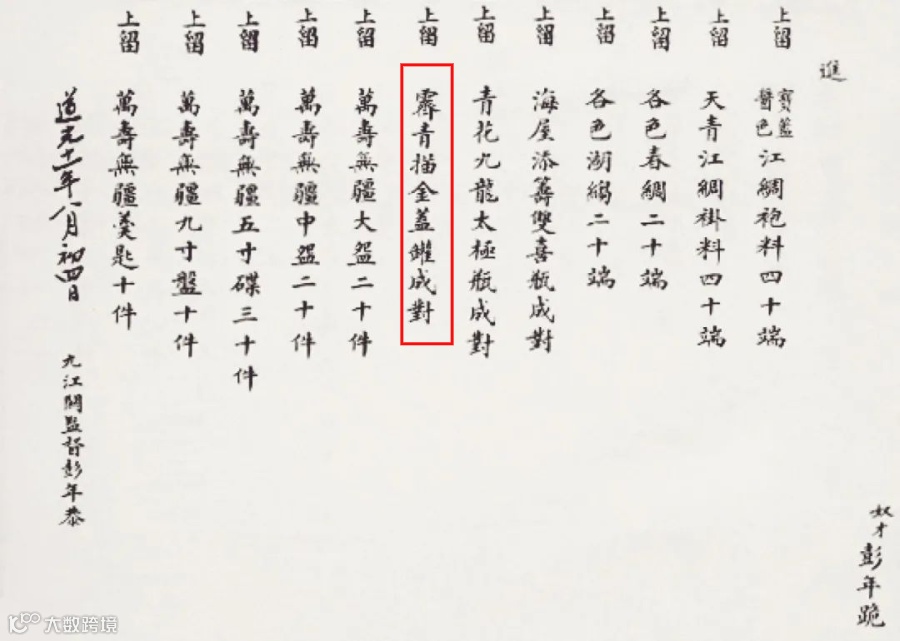 奴才彭年跪
進
上留 寶藍醬色江綢袍料四十端
上留 天青江綢褂料四十端
上留 各色春綢二十端
上留 各色湖縐二十端
上留 海屋添籌雙喜瓶成對
上留 青花九龍太極瓶成對
上留 霽青描金蓋罐成對
上留 萬壽無疆大盌二十件
上留 萬壽無疆中盌二十件
上留 萬壽無疆五寸碟三十件
上留 萬壽無疆九寸盤十件
上留 萬壽無疆羹匙十件
道光十一年八月初四日
九江關監督彭年恭
大数跨境